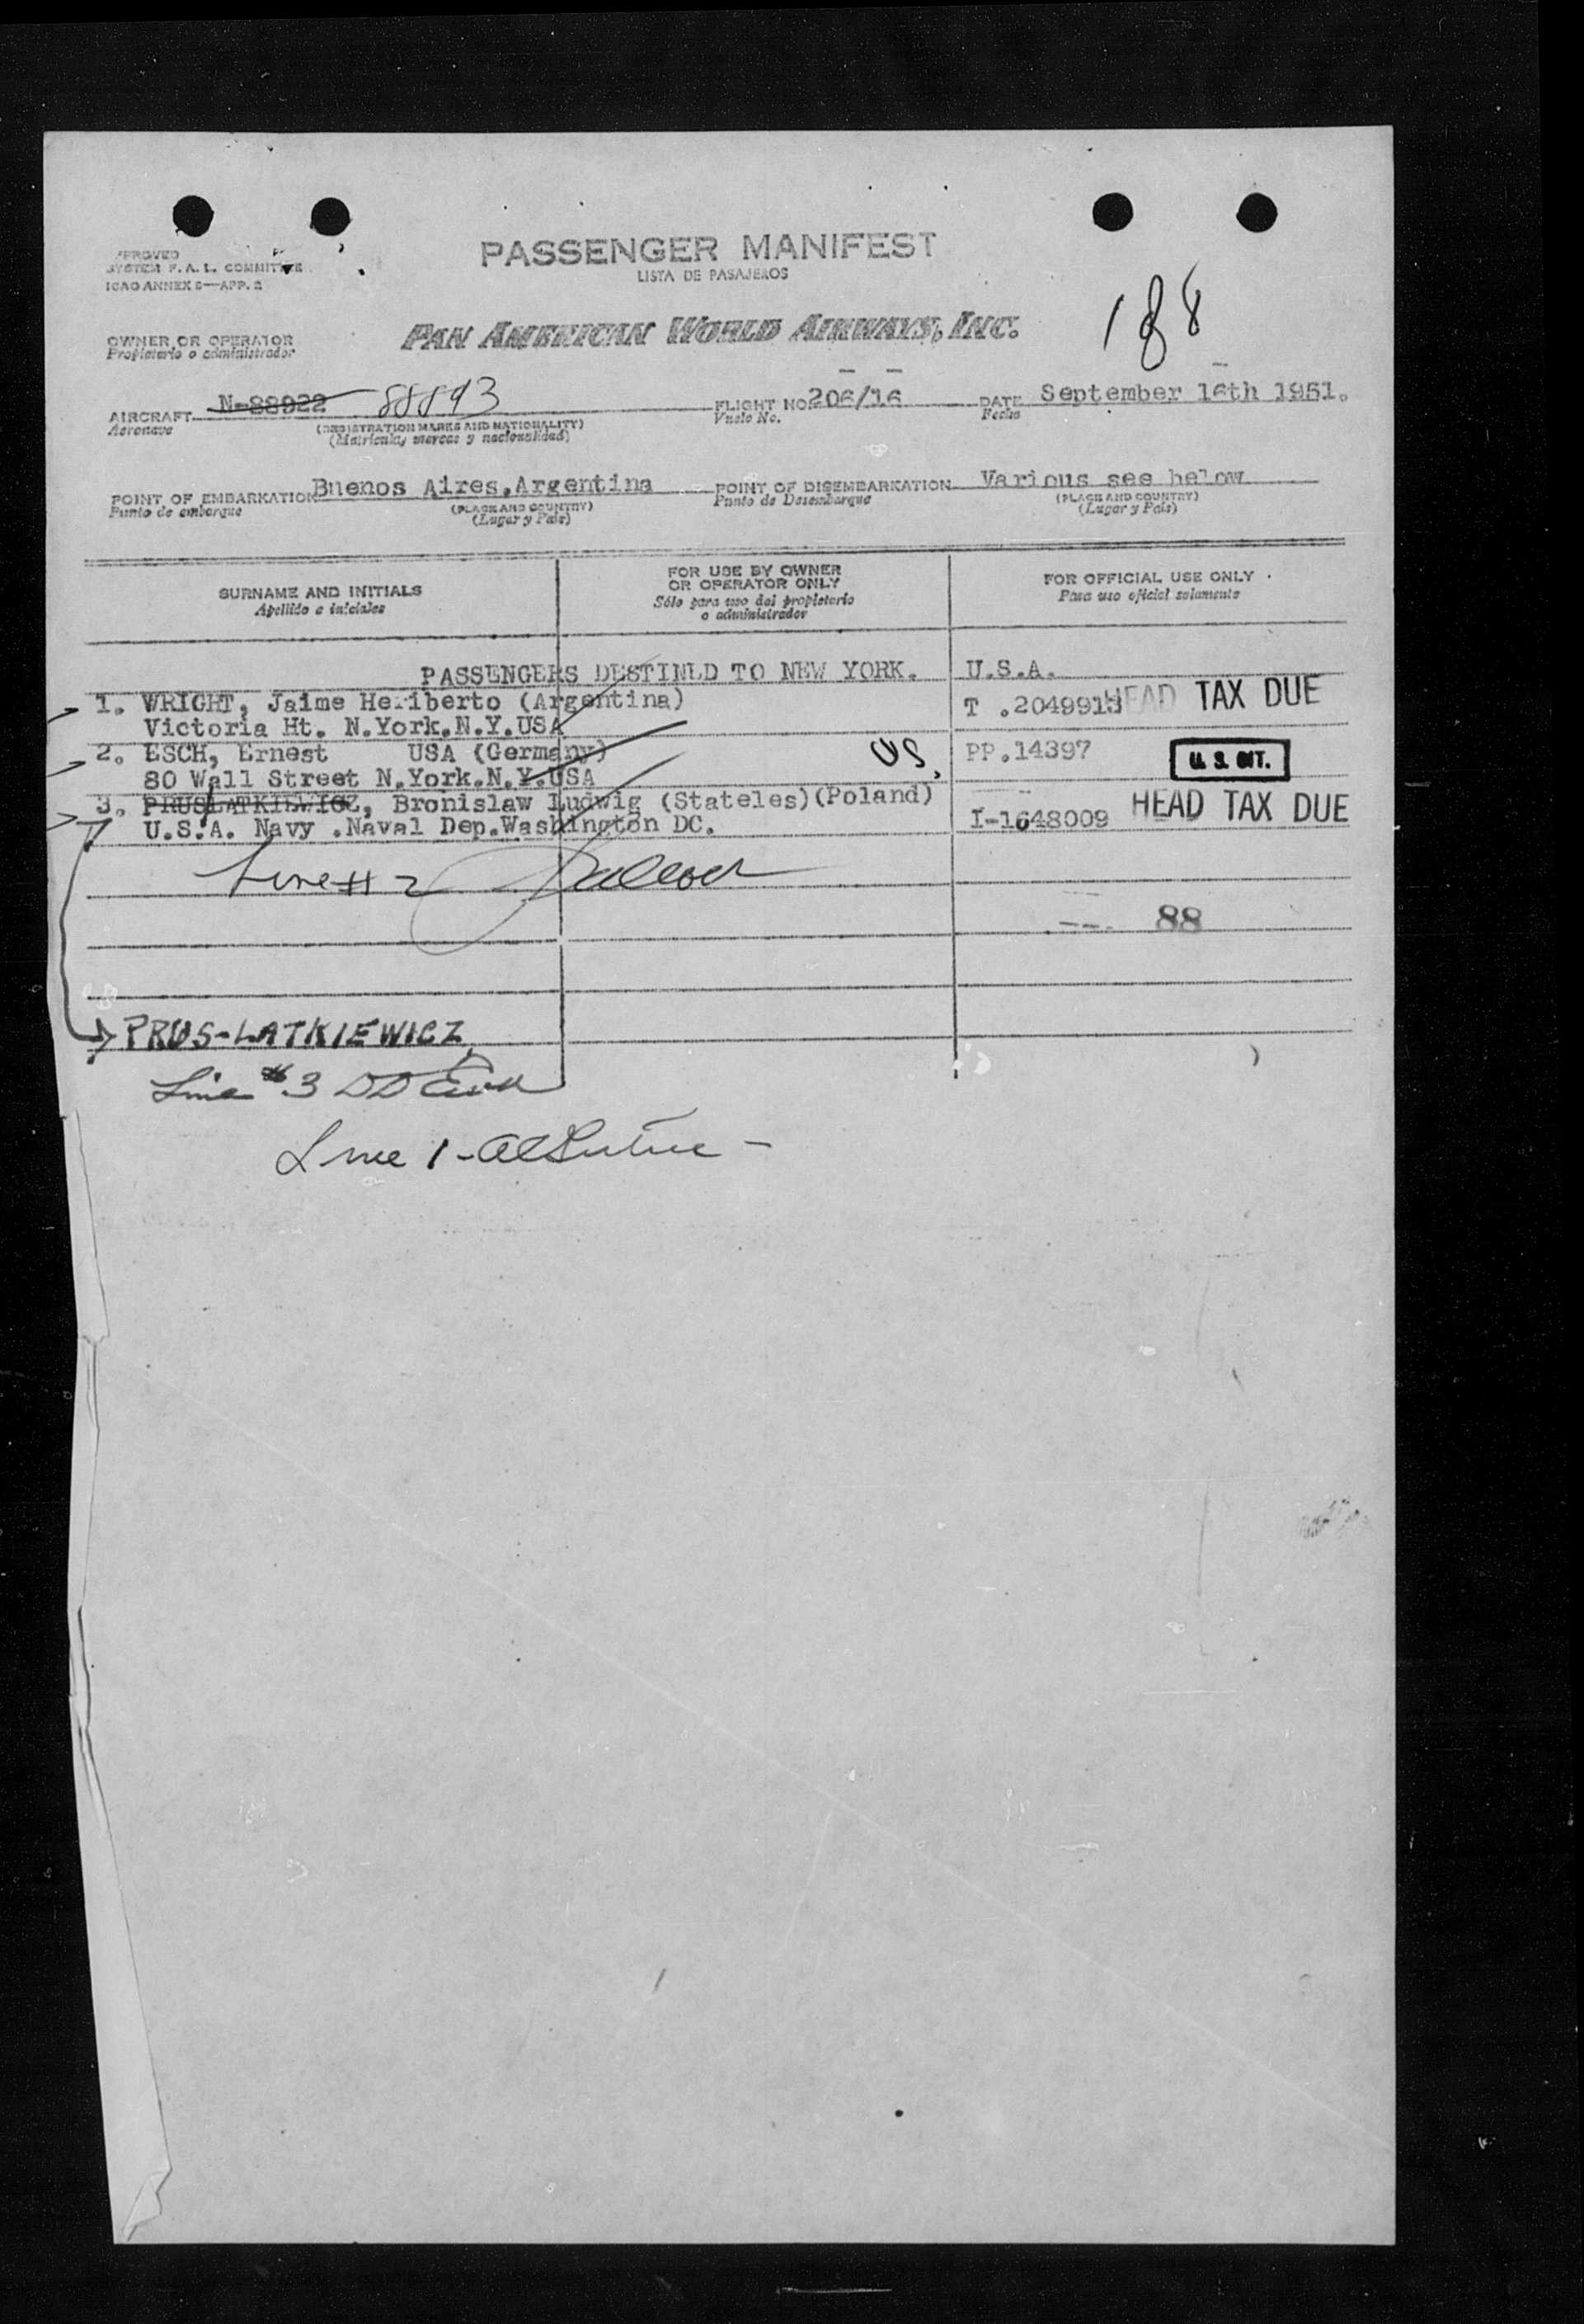 PASSENGER MANIFEST
LISTA DE PASAJEROS
SYSTEM F. A. L. COMMITTEE
ICAO ANNEX 9—APP. 2
188
OWNER OR OPERATOR
Propietario o administrador
PAN AMERICAN WORLD AIRWAYS, INC.
AIRCRAFT N-88922 88893 FLIGHT NO. 206/16 DATE September 16th 1951.
Aeronave (REGISTRATION MARKS AND NATIONALITY) Vuelo No. Fecha
(Matricula, marcas y nacionalidad)
POINT OF EMBARKATION Buenos Aires,Argentina POINT OF DISEMBARKATION Various see below
Punto de embarque (PLACE AND COUNTRY) Punto de Desembarque (PLACE AND COUNTRY)
(Lugar y País) (Lugar y País)
SURNAME AND INITIALS
Apellido e iniciales
FOR USE BY OWNER
OR OPERATOR ONLY
Sólo para uso del propietario
o administrador
FOR OFFICIAL USE ONLY
Para uso oficial solamente
PASSENGERS DESTINED TO NEW YORK. U.S.A.
1. WRIGHT, Jaime Heriberto (Argentina) T .2049918 HEAD TAX DUE
Victoria Ht. N.York.N.Y.USA
2. ESCH, Ernest USA (Germany) US. PP.14397 U. S. CIT.
80 Wall Street N.York.N.Y.USA
3. PRUSLATKIEWICZ, Bronislaw Ludwig (Stateles)(Poland) I-1648009 HEAD TAX DUE
U.S.A. Navy .Naval Dep.Washington DC.
Line # 2
88
PRUS-LATKIEWICZ
Line #3
Line 1 -